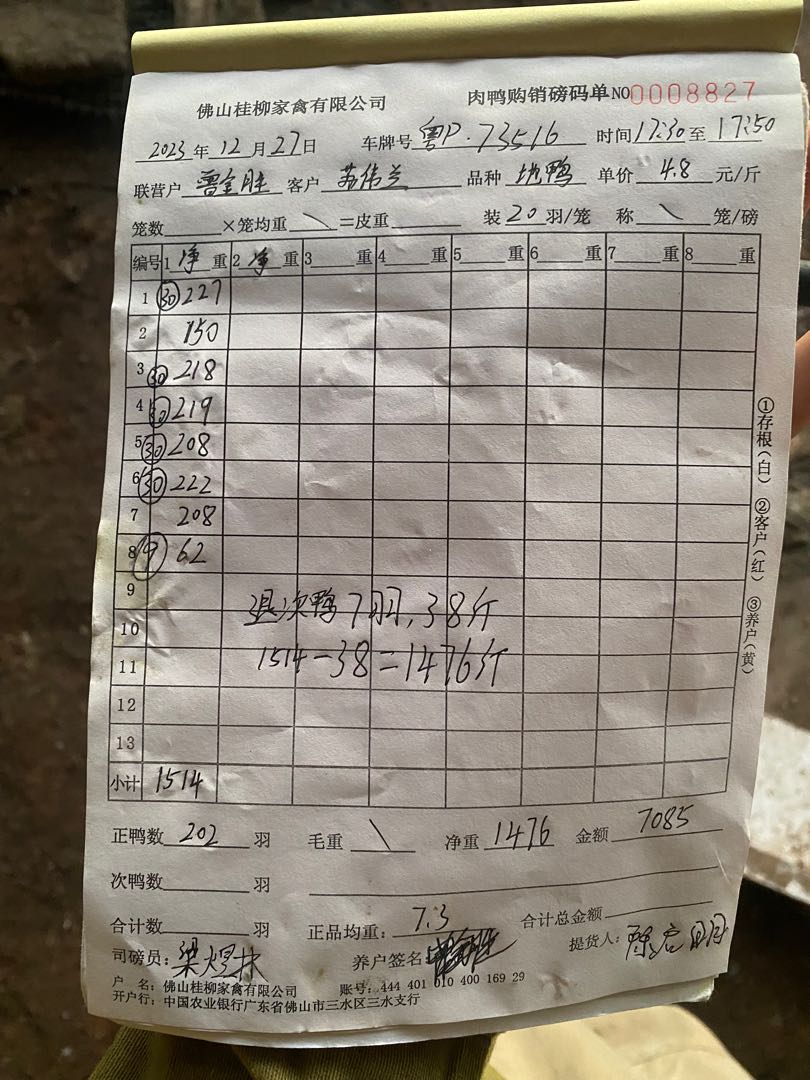 佛山桂柳家禽有限公司 肉鸭购销磅码单 NO 0008827
2023年12月27日 车牌号 粤P·73516 时间 17:30 至 17:50
联营户 曾金胜 客户 苏伟兰 品种 坑鸭 单价 4.8 元/斤
笼数 ×笼均重 \ =皮重 装 20 羽/笼 称 \ 笼/磅
编号 1 净 重 2 净 重 3 重 4 重 5 重 6 重 7 重 8 重
1 30 227
2 150
3 30 218
4 30 219
5 30 208
6 30 222
7 208
8 9 62
9
退次鸭7只, 38斤
10
1514-38=1476斤
11
12
13
小计 1514
正鸭数 202 羽 毛重 \ 净重 1476 金额 7085
次鸭数 羽
合计数 羽 正品均重: 7.3 合计总金额
司磅员: 养户签名: 提货人:
户 名: 佛山桂柳家禽有限公司 账号: 444 401 010 400 169 29
开户行: 中国农业银行广东省佛山市三水区三水支行
①存根(白) ②客户(红) ③养户(黄)